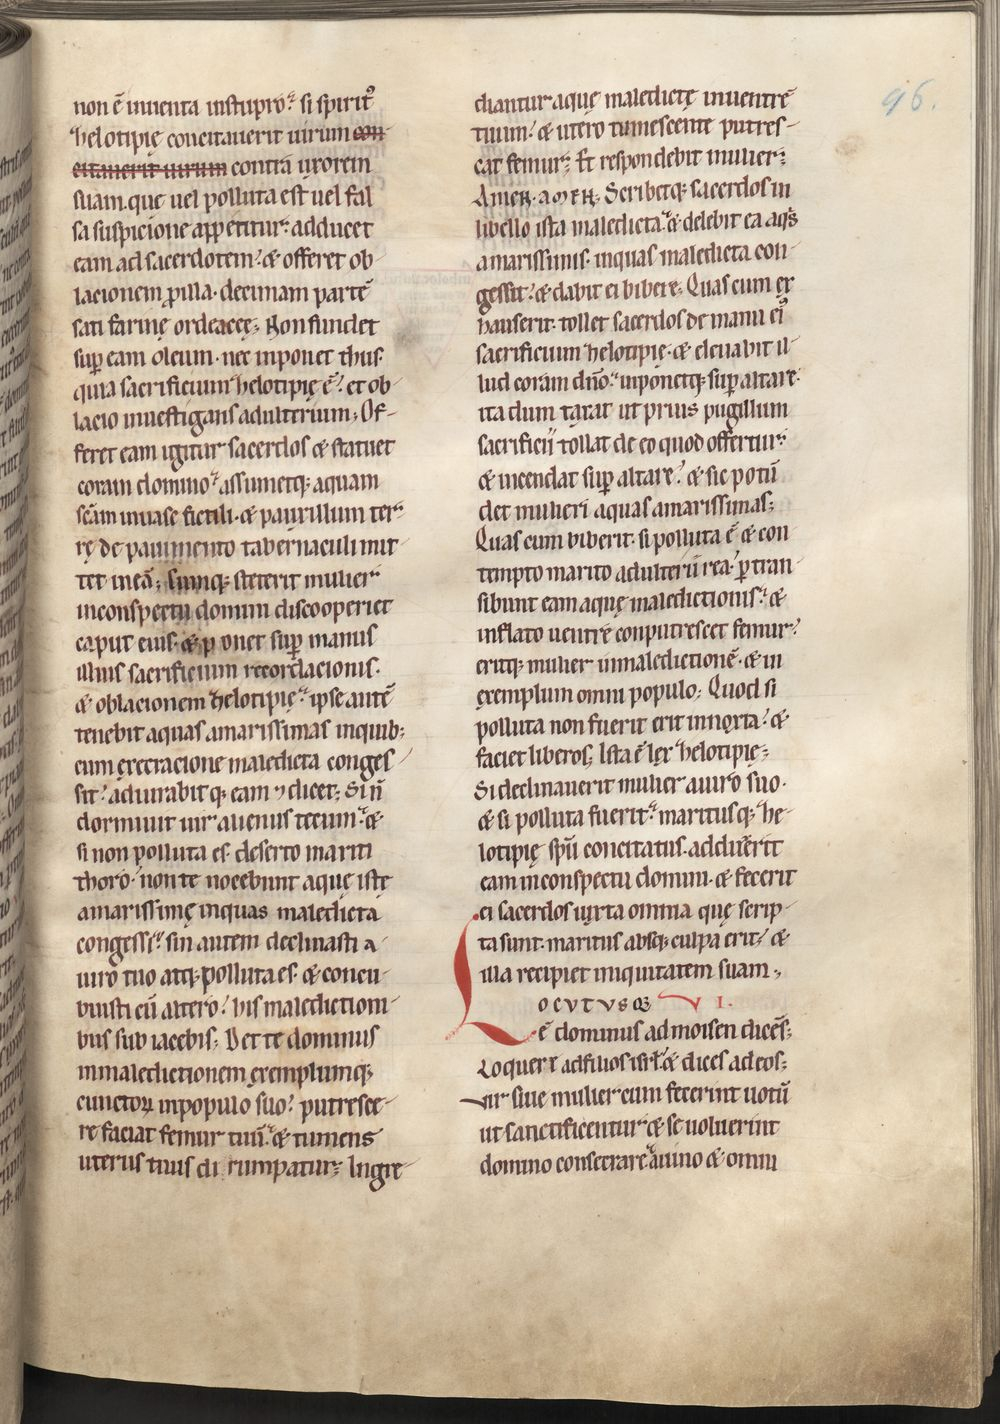 non ē inuenta instupro. si spiritꝰ
helotipię concitauerit uirum con-
citauerit uirum contra uxorem
suam. que uel polluta est uel fal
sa suspicione appetitur: adducet
eam ad sacerdotem. & offeret ob-
lacionem ꝓ illa. decimam partē
sati farinę ordeacęę; Non fundet
suꝑ eam oleum. nec inponet thus.
quia sacrificium helotipię ē. et ob-
lacio inuestigans adulterium; Of-
feret eam igitur sacerdos & statuet
coram domino. assumetqꝫ aquam
scām inuase fictili. & pauxillum ter-
rę de pauimento tabernaculi mit-
tet ineā; Cumqꝫ steterit mulier
inconspectu domini discooperiet
caput eius. & p onet suꝑ manus
illius sacrificium recordacionis.
& oblacionem helotipię. ipse autē
tenebit aquas amarissimas inquibꝫ
cum execracione maledicta conges-
sit. adiurabitqꝫ eam ⁊ dicet; Si n̄
dormiuit uir alienus tecum. &
si non polluta es. deserto mariti
thoro. non te nocebunt aquę istę
amarissimę inquas maledicta
congessi. sin autem declinasti a
uiro tuo atqꝫ polluta es. & concu-
buisti cū altero. his malediction-
bus sub iacebis; Det te dominus
inmaledictionem exemplumqꝫ
cunctoꝝ inpopulo suo. putresce-
re faciat femur tuū. & tumens
uterus tuus di rumpatur; Ingre-
diantur aquę maledictę inuentrē
tuum. & utero tumescente putres-
cat femur; Et respondebit mulier;
Amen. amen. Scribetqꝫ sacerdos in
libello ista maledicta. & delebit ea aqis
amarissimis. inquas maledicta con-
gessit. & dabit ei bibere; Quas cum ex
hauserit. tollet sacerdos de manu eiꝰ
sacrificium helotipię. & eleuabit il-
lud coram dn̄o. inponetqꝫ suꝑ altare.
ita dum taxat ut prius pugillum
sacrificii tollat de eo quod offertur.
& incendat suꝑ altare. & sic potū
det mulieri aquas amarissimas;
Quas cum biberit. si polluta ē & con
tempto marito adulterii rea. ꝑtran-
sibunt eam aquę maledictionis. &
inflato uentre conputrescet femur.
eritqꝫ mulier inmaledictionē. & in
exemplum omni populo; Quod si
polluta non fuerit erit innoxia. &
faciet liberos; Ista ē lex helotipię;
Si declinauerit mulier auiro suo.
& si polluta fuerit. maritusqꝫ he-
lotipię spū concitatus. adduxerit
eam inconspectu domini. & fecerit
ei sacerdos iuxta omnia quę scrip-
ta sunt. maritus absqꝫ culpa erit. &
illa recipiet iniquitatem suam;
LOCVTVSQꝫ VI.
ē dominus ad moisen dicēs;
Loquere adfilios isrl̄. & dices ad eos;
Vir siue mulier cum fecerint uotū
ut sanctificentur & se uoluerint
domino consecrare. auino & omni
96.